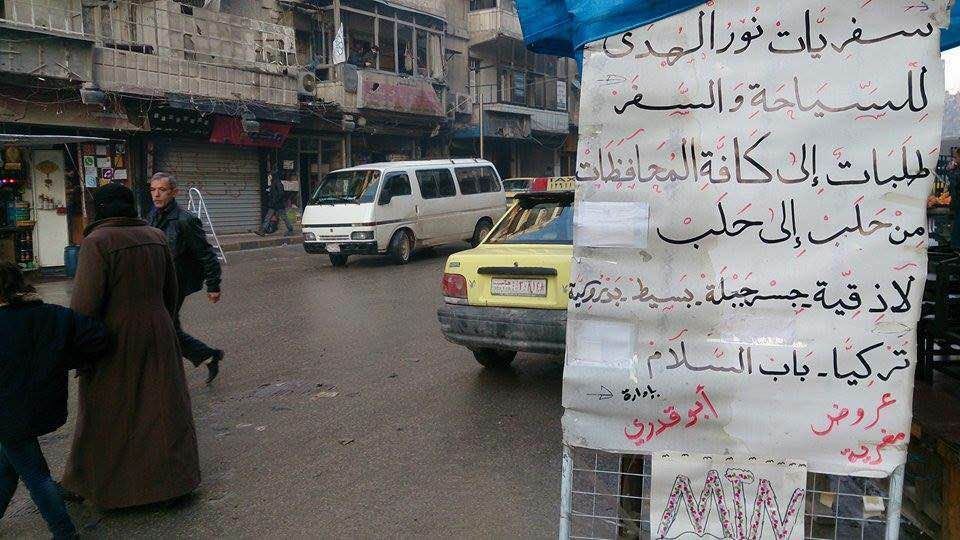 سَفَريَّات نُورُ الهُدَى
لِلسِّيَاحَةِ وَ السَّفَرْ
طلبَات إلى كَافَّةِ المُحَافَظَاتْ
مِنْ حَلَبْ إلى حَلَبْ
لَاذقِيّة - جِسر - جَبْلَة - بَسِيط -
تَركيَّا - باب السَّلَامْ
بإدارة
أبو قدري
عروض
مغرية
MTN